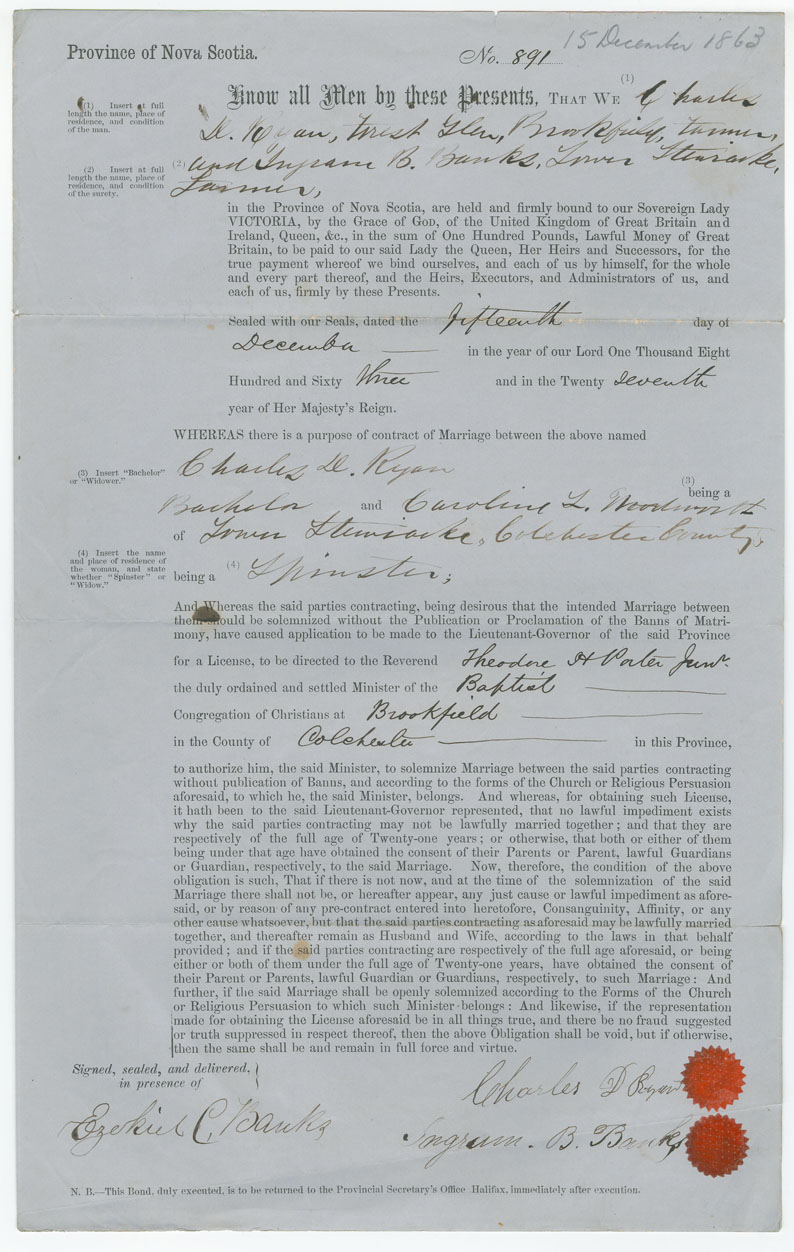 15 December 1863
Province of Nova Scotia.
No. 891
Know all Men by these Presents, THAT WE (1) Charles
D. Ryan, West Glen, Brookfield, farmer,
(2) and Ingram B. Banks, Lower Stewiacke,
Farmer,
(1) Insert at full
length the name, place of
residence, and condition
of the man.
(2) Insert at full
length the name, place of
residence, and condition
of the surety.
in the Province of Nova Scotia, are held and firmly bound to our Sovereign Lady
VICTORIA, by the Grace of GOD, of the United Kingdom of Great Britain and
Ireland, Queen, &c., in the sum of One Hundred Pounds, Lawful Money of Great
Britain, to be paid to our said Lady the Queen, Her Heirs and Successors, for the
true payment whereof we bind ourselves, and each of us by himself, for the whole
and every part thereof, and the Heirs, Executors, and Administrators of us, and
each of us, firmly by these Presents.
Sealed with our Seals, dated the fifteenth day of
December in the year of our Lord One Thousand Eight
Hundred and Sixty three and in the Twenty seventh
year of Her Majesty's Reign.
WHEREAS there is a purpose of contract of Marriage between the above named
Charles D. Ryan
(3) being a
Bachelor and Caroline L. Woodworth
of Lower Stewiacke, Colchester County,
being a (4) Spinster;
(3) Insert "Bachelor"
or "Widower."
(4) Insert the name
and place of residence of
the woman, and state
whether "Spinster" or
"Widow."
And Whereas the said parties contracting, being desirous that the intended Marriage between
them should be solemnized without the Publication or Proclamation of the Banns of Matri-
mony, have caused application to be made to the Lieutenant-Governor of the said Province
for a License, to be directed to the Reverend Theodore H Porter Junr.
the duly ordained and settled Minister of the Baptist
Congregation of Christians at Brookfield
in the County of Colchester in this Province,
to authorize him, the said Minister, to solemnize Marriage between the said parties contracting
without publication of Banns, and according to the forms of the Church or Religious Persuasion
aforesaid, to which he, the said Minister, belongs. And whereas, for obtaining such License,
it hath been to the said Lieutenant-Governor represented, that no lawful impediment exists
why the said parties contracting may not be lawfully married together; and that they are
respectively of the full age of Twenty-one years; or otherwise, that both or either of them
being under that age have obtained the consent of their Parents or Parent, lawful Guardians
or Guardian, respectively, to the said Marriage. Now, therefore, the condition of the above
obligation is such, That if there is not now, and at the time of the solemnization of the said
Marriage there shall not be, or hereafter appear, any just cause or lawful impediment as afore-
said, or by reason of any pre-contract entered into heretofore, Consanguinity, Affinity, or any
other cause whatsoever, but that the said parties contracting as aforesaid may be lawfully married
together, and thereafter remain as Husband and Wife, according to the laws in that behalf
provided; and if the said parties contracting are respectively of the full age aforesaid, or being
either or both of them under the full age of Twenty-one years, have obtained the consent of
their Parent or Parents, lawful Guardian or Guardians, respectively, to such Marriage: And
further, if the said Marriage shall be openly solemnized according to the Forms of the Church
or Religious Persuasion to which such Minister belongs: And likewise, if the representation
made for obtaining the License aforesaid be in all things true, and there be no fraud suggested
or truth suppressed in respect thereof, then the above Obligation shall be void, but if otherwise,
then the same shall be and remain in full force and virtue.
Signed, sealed, and delivered,
in presence of
Charles D Ryan
Ezekiel C. Banks
Ingrum. B. Banks
N. B.—This Bond, duly executed, is to be returned to the Provincial Secretary's Office Halifax, immediately after execution.